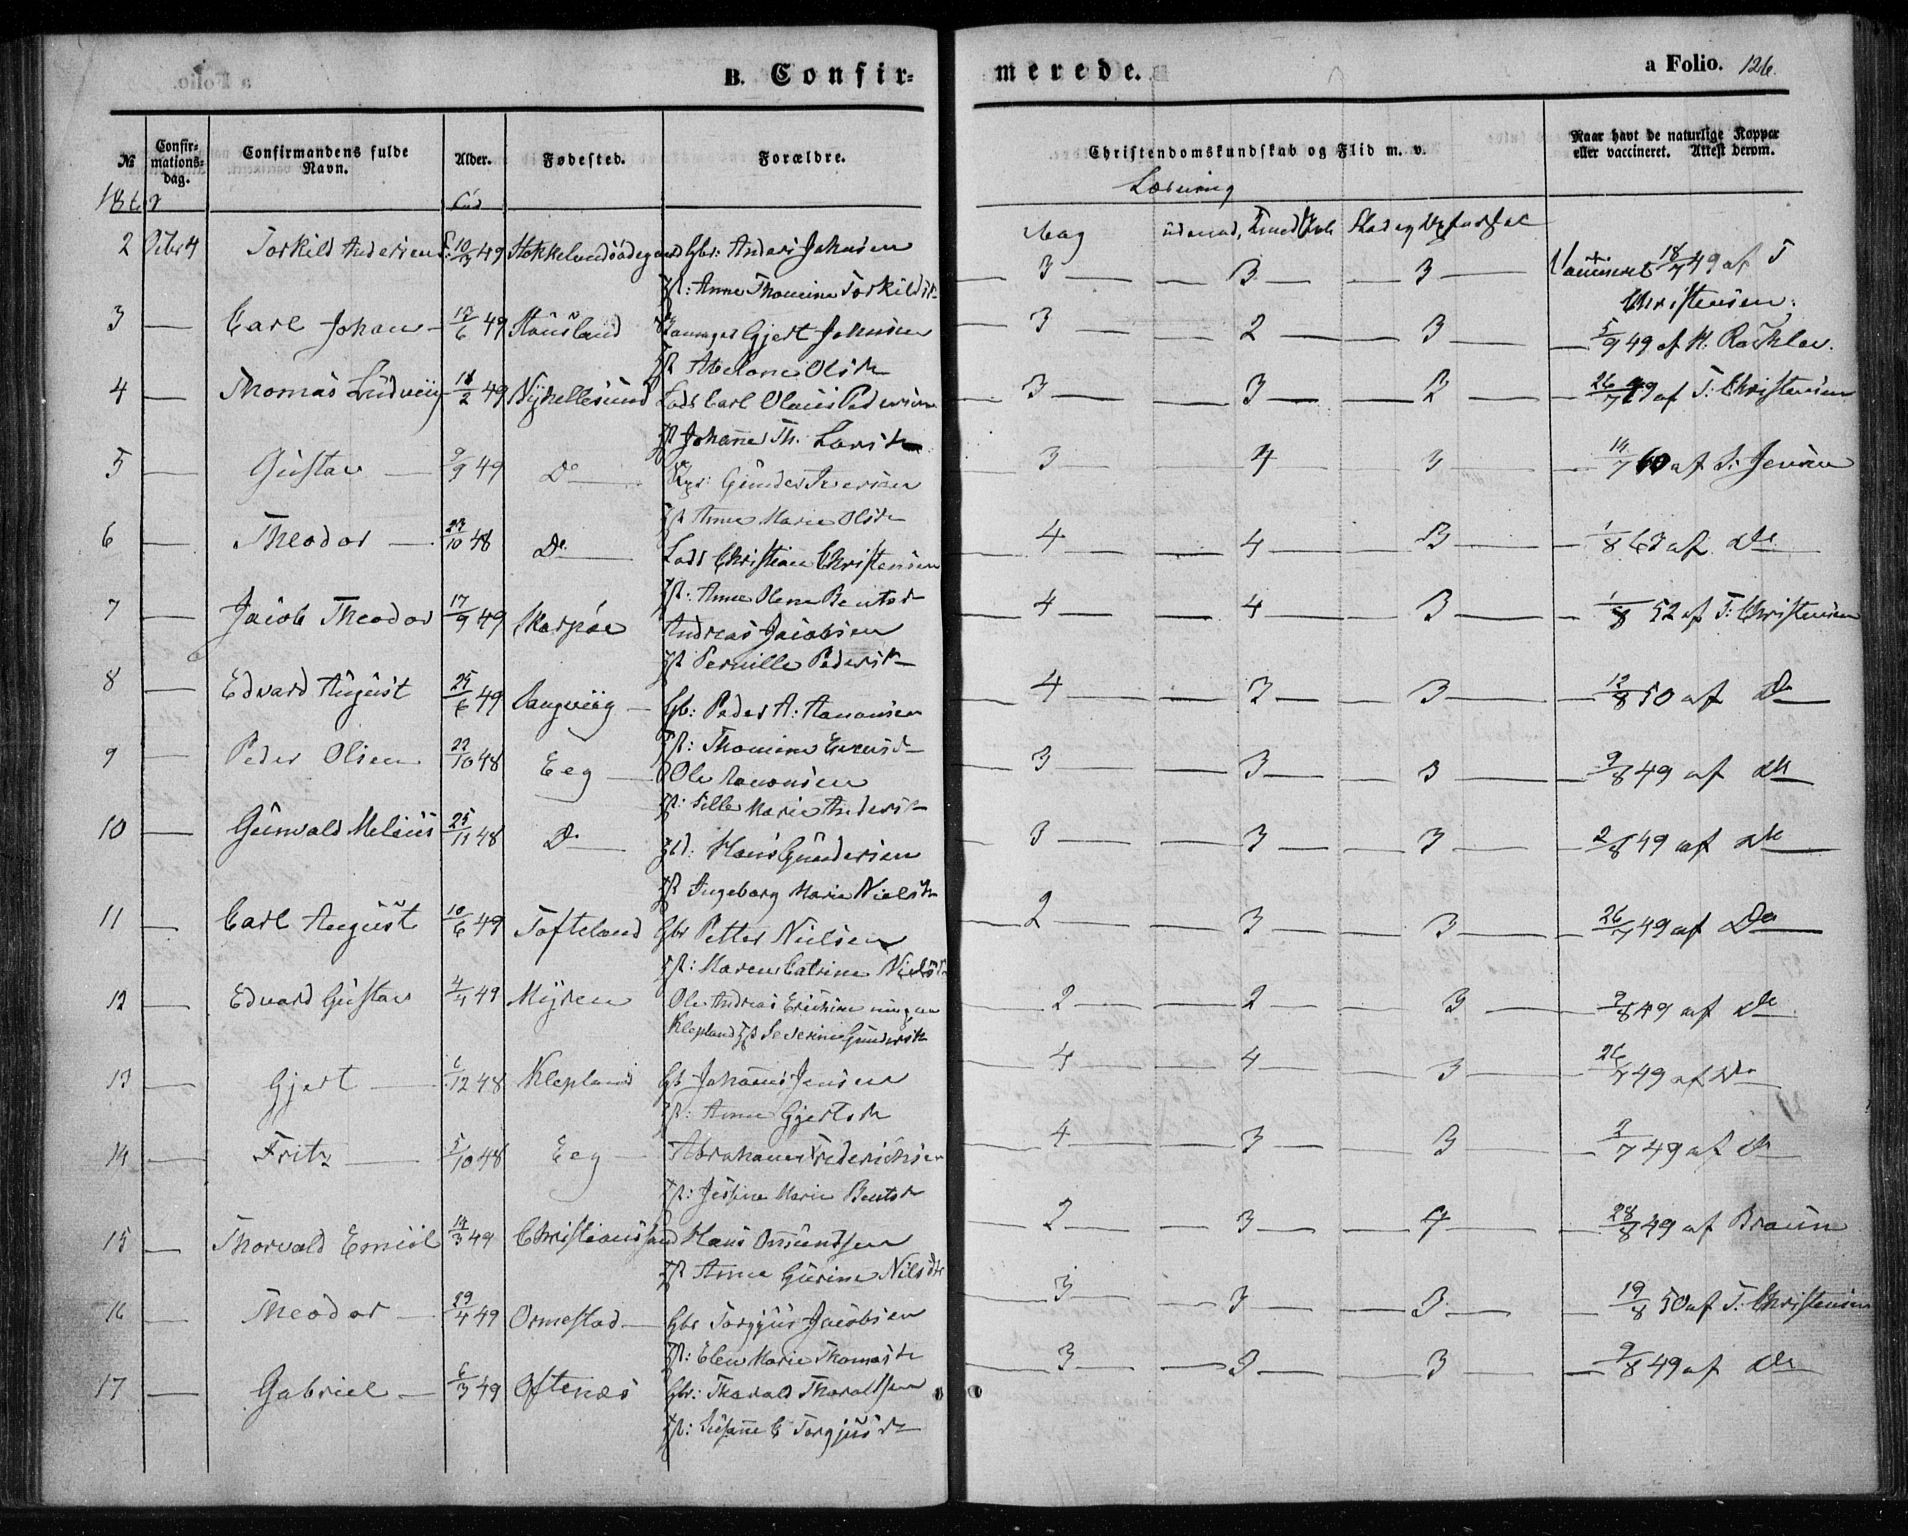 B. Confir=
merede.
a Folio. 126.
№
Confir=
mations=
dag.
Confirmandens fulde
Navn.
Alder.
Fødested.
Forældre.
Christendomskundskab og Flid m. v.
Naar havt de naturlige Kopper
eller vaccineret. Attest derom.
Læsning
Bog
2 Octbr 4 Torkild Andersen 10/3 49 Gbr: Anders Johnsen 3 3 3 Vaccineret 18/7 49 af T
Christensen.
& Anne Thomine Torkildsdr
3 — Carl Johan — 6 49 Stausland Gjert Johnsen 3 2 3 — 5/9 49 af H.
& Abelone Olsdr
4 — Thomas Ludvig 2 49 Nyhellesund Lods Carl Olaus Pedersen 3 3 3 — 26/7 49 af T: Christensen
& Johanne Th. Larsdr
5 — Gustav — 9/9 49 Do Gunder Iversen 3 4 3 — 14/7 60 af S: Jensen
& Anne Marie Olsdr
6 — Theodor — 23/10 48 Do Lods Christian Christensen 4 4 3 — 1/8 63 af Do
&: Anne Olene Bentsdr
7 — Jacob Theodor 17/9 49 Skarpøe Andreas Jacobsen 4 4 3 1/8 52 af T: Christensen
& Pernille Pedersdr
8 — Edvard August 25/6 49 Langvig — Gb: Peder A: Aanonsen 4 3 3 — 12/8 50 af Do
&: Thomine Evensdr
9 — Peder Olsen 22/10 48 Eeg — Ole Aanonsen 3 3 3 — 9/8 49 af do
&: Sille Marie Andersdr
10 — Gunvald Melaus 25/11 48 Do Hans Gundersen 3 3 3 — 2/8 49 af do
& Ingeborg Marie Nielsdr
11 — Carl August 10/6 49 Tofteland Gbr Petter Nielsen 2 3 3 — 26/7 49 af Do
&: Maren Catrine Nielsdr
12 — Edvard Gustav 4/4 49 Myren Ole Andreas 2 2 3 — 9/8 49 af do
Klepland & Severine Gundersdr
13 — Gjert — 6/12 48 Klepland Gb Johannes Jensen 4 4 3 26/7 49 af do
&: Anne Gjertsdr
14 — Fritz — 5/10 48 Eeg — Abraham Frederichsen 4 3 3 — 2/7 49 af do
&: Jessine Marie Bentsdr
15 — Thorvald Emil 14/3 49 Christianssand Hans Omundsen 2 3 4 — 28/8 49 af Braun
& Anne Gurine Nilsdtr
16 — Theodor — 29/4 49 Ormestad — Gbr Torgjus Jacobsen 3 3 3 — 19/8 50 af T. Christensen
&: Elen Marie Thomasdr
17 — Gabriel — 6/3 49 Oftenæs Gbr: Tharald Tharaldsen 3 3 3 — 9/8 49 af do
&: Susanne C Torgjusdr